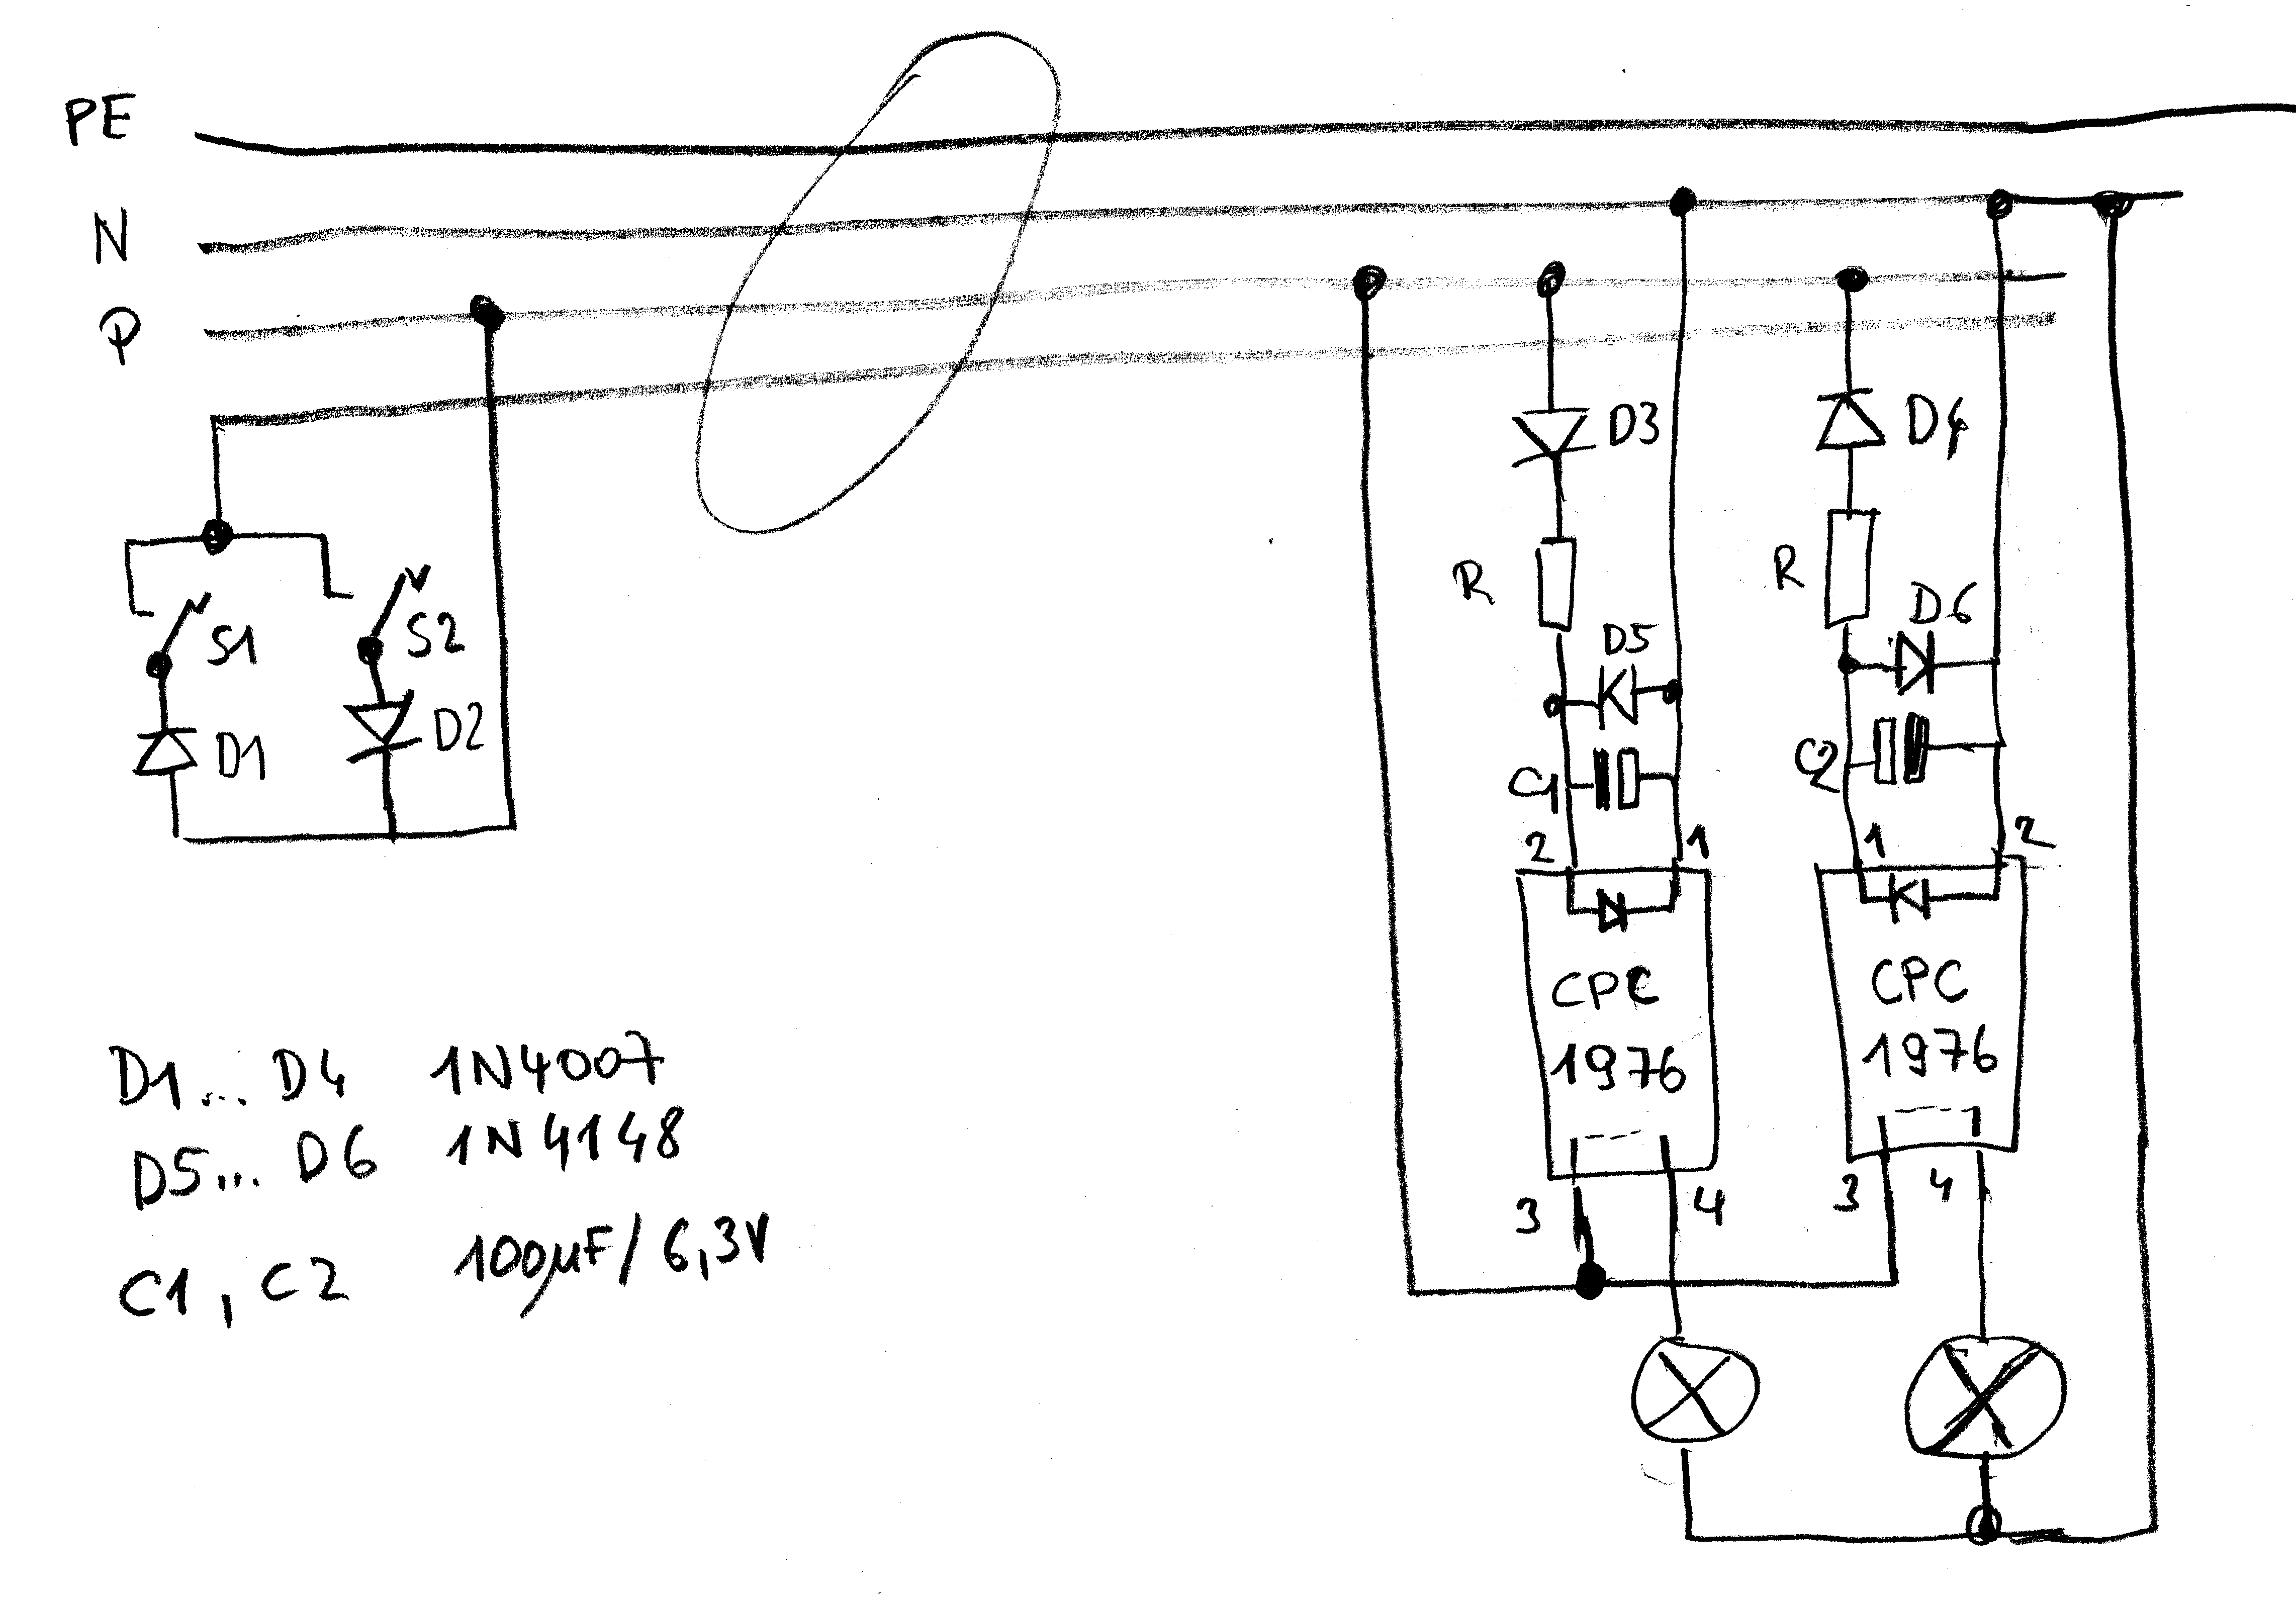 PE
N
P
D3
D4
R
R
D5
D6
S1
S2
D1
D2
C1
C2
2
1
1
2
CPC
1976
CPC
1976
3
4
3
4
D1... D4 1N4007
D5... D6 1N4148
C1, C2 100µF/6,3V